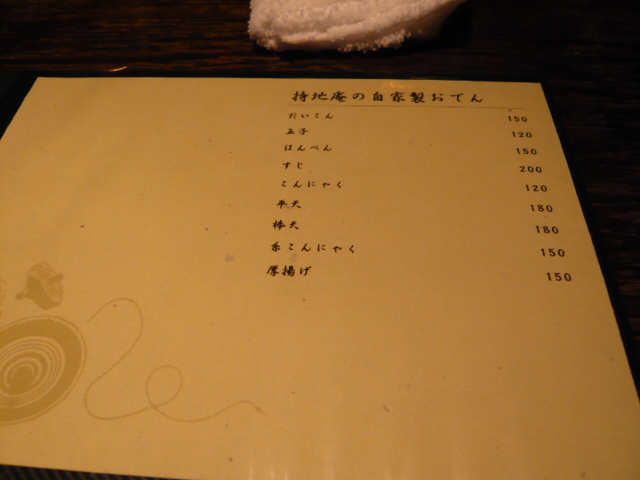 持地庵の自家製おでん
だいこん 150
玉子 120
はんぺん 150
すじ 200
こんにゃく 120
平天 180
棒天 180
糸こんにゃく 150
厚揚げ 150